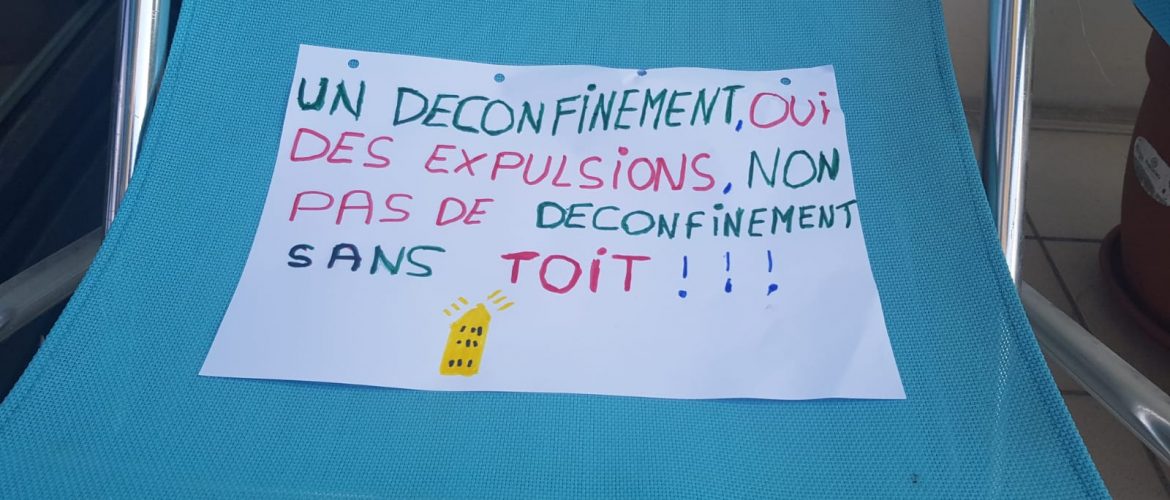 UN DECONFiNEMENT, OUi
DES EXPULSiONS, NON
PAS DE DECONFiNEMENT
SANS TOiT ! ! !